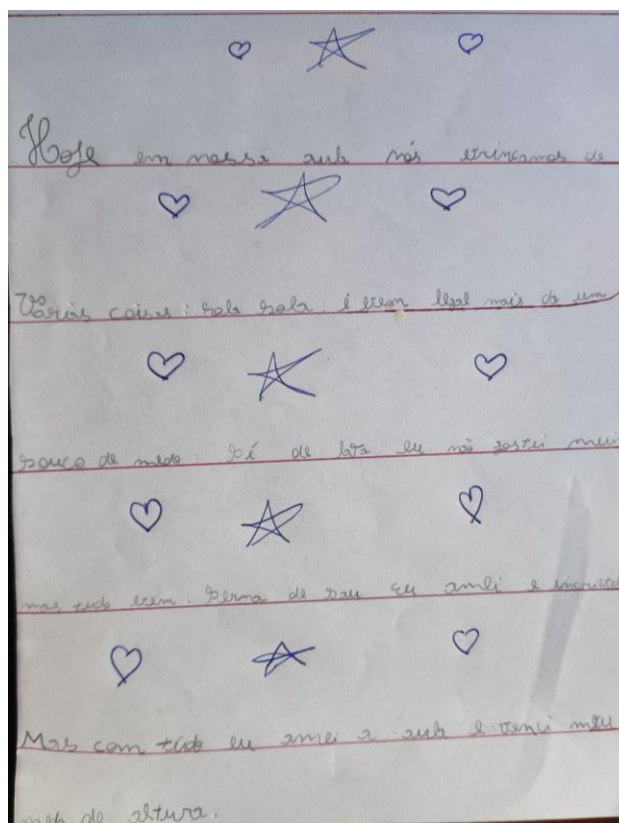 Hoje em nossa aula nós brincamos de
Varias coisas: pula pula. é bem legal mais da um
pouco de medo. Pé de lata eu não gostei mui
mas tudo bem. Perna de pau eu amei e incrivel
Mas com tudo eu amei a aula e venci meu
medo de altura.